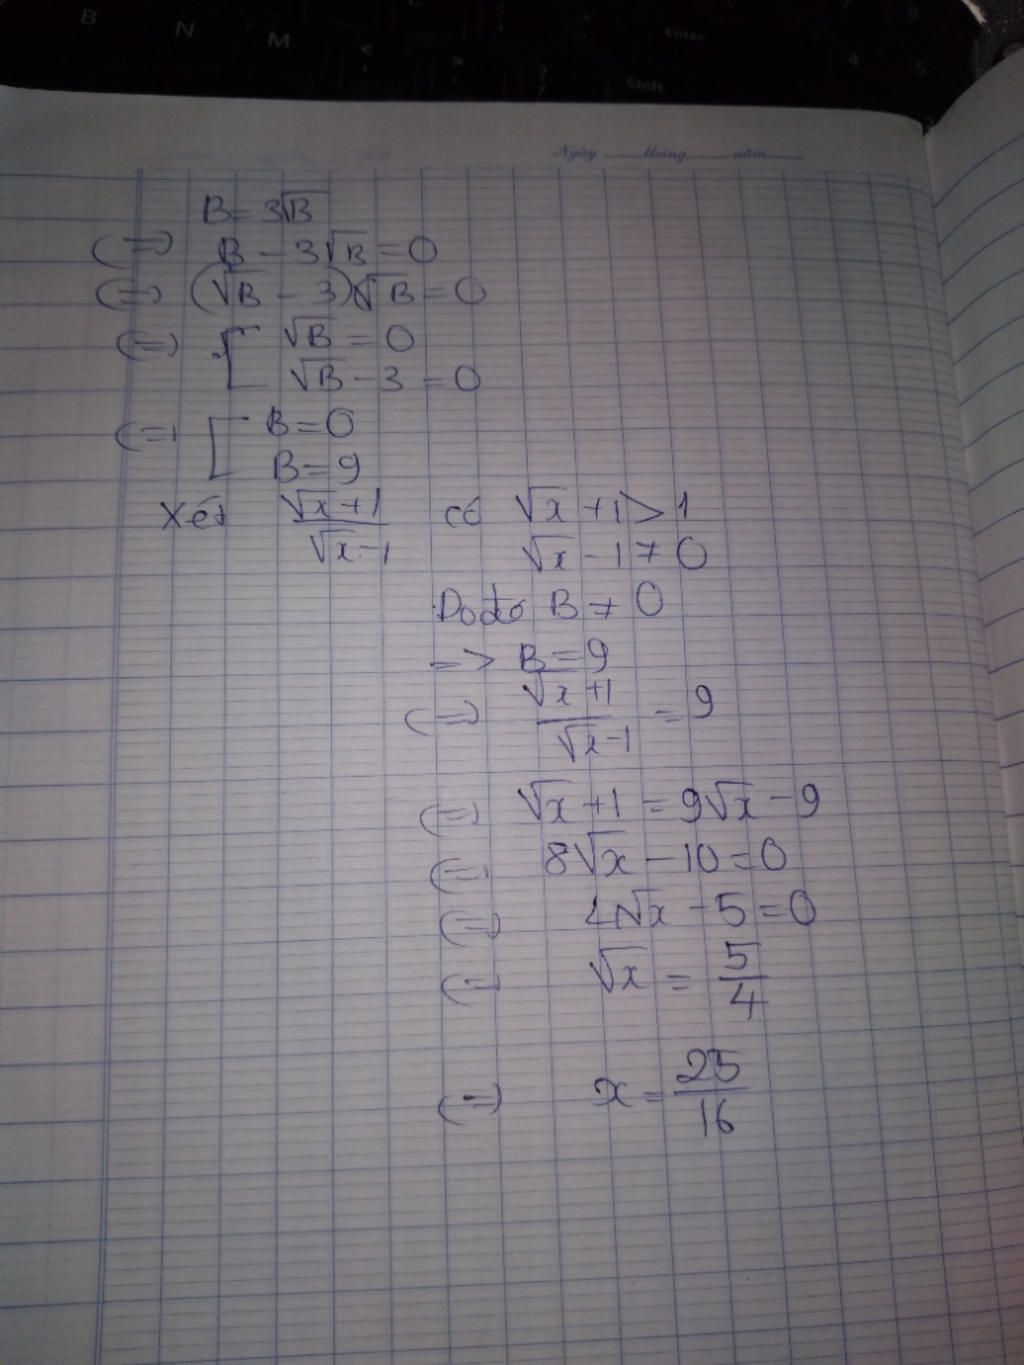 B N M < > ? Enter Shift 4 5
Ngày ........ tháng ........ năm ........
B = 3√B
(=) B - 3√B = 0
(=) (√B - 3)√B = 0
(=) [ √B = 0
√B - 3 = 0
(=) [ B = 0
B = 9
Xét (√x + 1)/(√x - 1) có √x + 1 > 1
√x - 1 ≠ 0
Do đó B ≠ 0
=> B = 9
(=) (√x + 1)/(√x - 1) = 9
(=) √x + 1 = 9√x - 9
(=) 8√x - 10 = 0
(=) 4√x - 5 = 0
(=) √x = 5/4
(=) x = 25/16